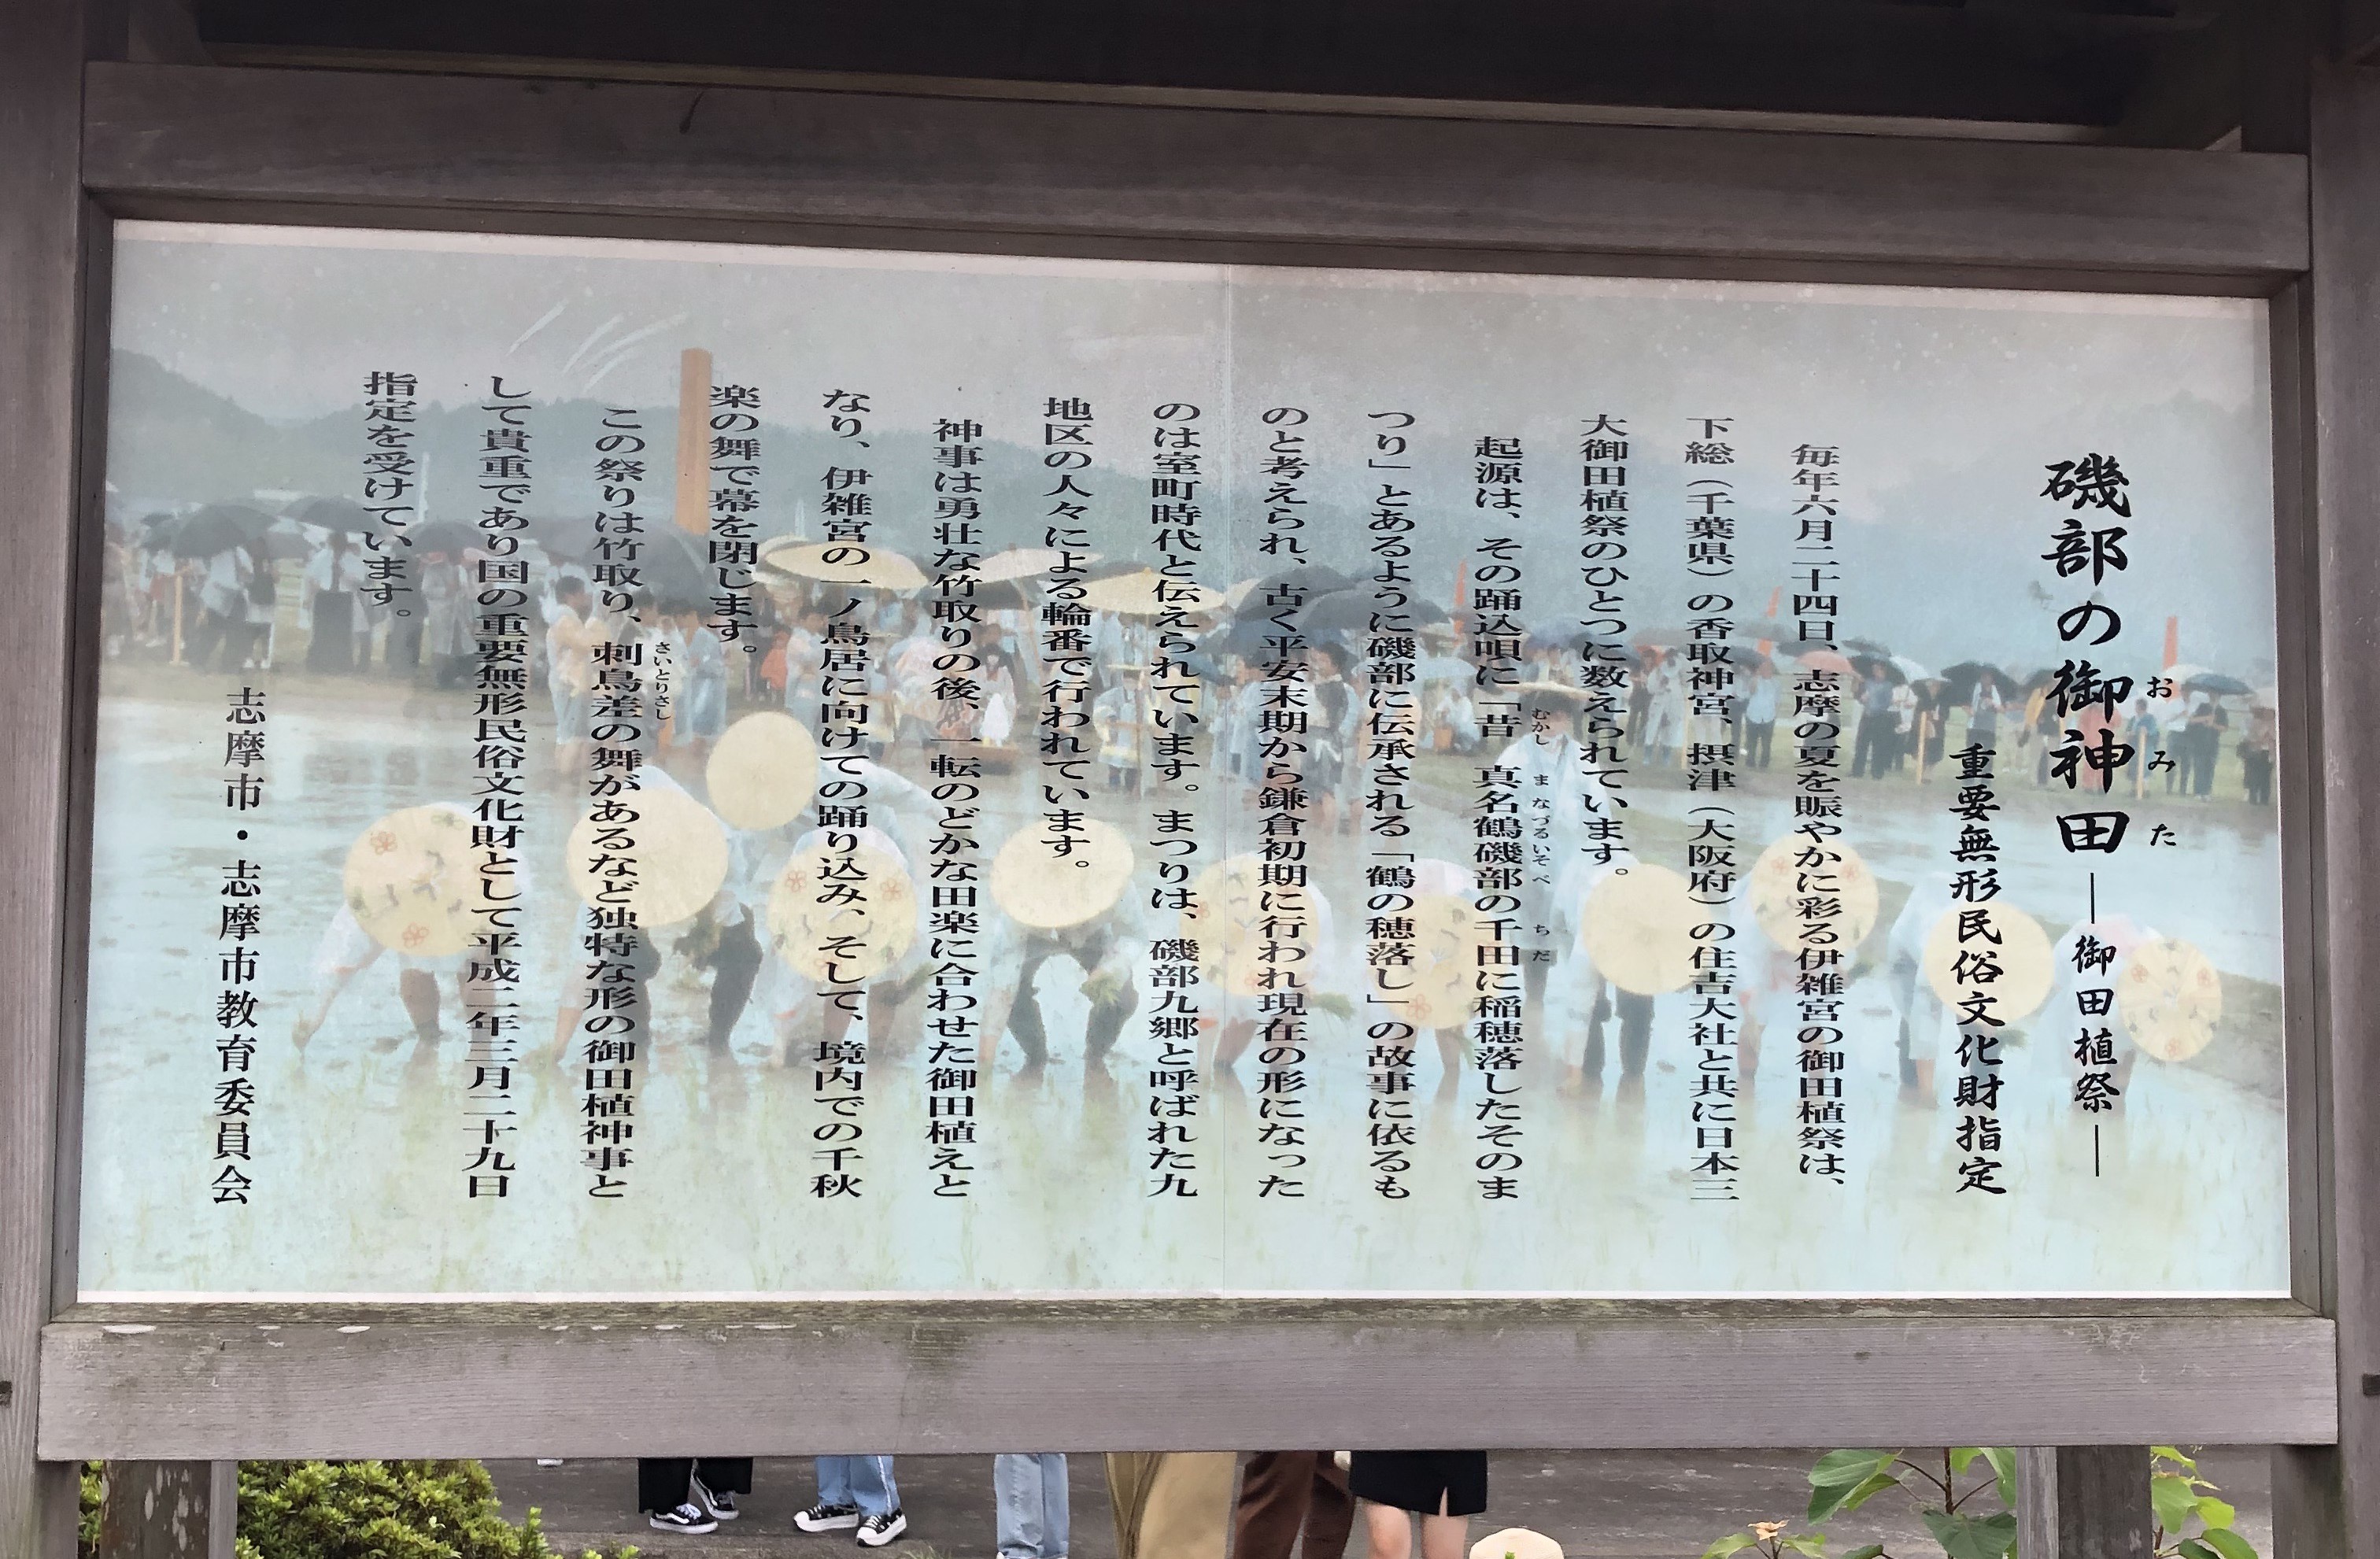 磯部の御神田 ―御田植祭―
おみた
重要無形民俗文化財指定
毎年六月二十四日、志摩の夏を賑やかに彩る伊雑宮の御田植祭は、
下総（千葉県）の香取神宮、摂津（大阪府）の住吉大社と共に日本三
大御田植祭のひとつに数えられています。
起源は、その踊込唄に「昔　真名鶴磯部の千田に稲穂落したそのま
むかし まなづるいそべ ちだ
つり」とあるように磯部に伝承される「鶴の穂落し」の故事に依るも
のと考えられ、古く平安末期から鎌倉初期に行われ現在の形になった
のは室町時代と伝えられています。まつりは、磯部九郷と呼ばれた九
地区の人々による輪番で行われています。
神事は勇壮な竹取りの後、一転のどかな田楽に合わせた御田植えと
なり、伊雑宮の一ノ鳥居に向けての踊り込み、そして、境内での千秋
楽の舞で幕を閉じます。
この祭りは竹取り、刺鳥差の舞があるなど独特な形の御田植神事と
さいとりさし
して貴重であり国の重要無形民俗文化財として平成二年三月二十九日
指定を受けています。
志摩市・志摩市教育委員会